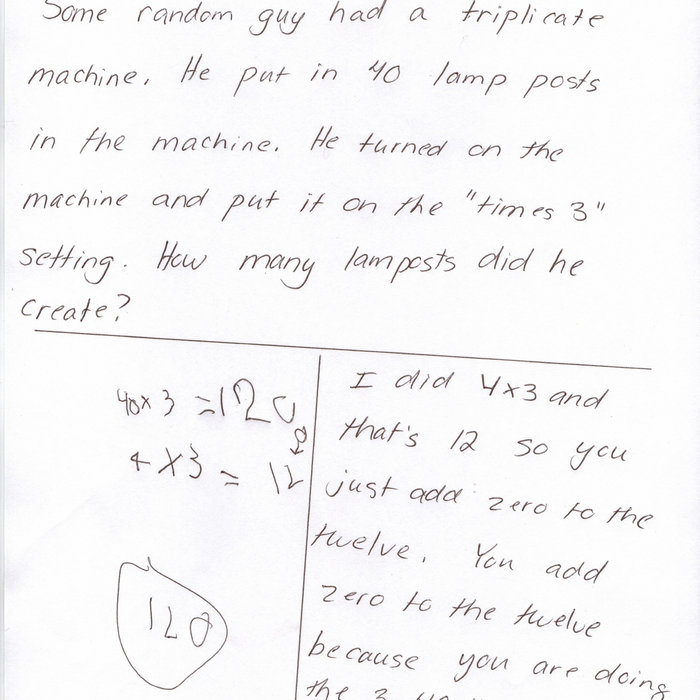 Some random guy had a triplicate
machine. He put in 40 lamp posts
in the machine. He turned on the
machine and put it on the "times 3"
setting. How many lamposts did he
create?
40x3 = 120
4x3 = 12
120
I did 4x3 and
that's 12 so you
just add zero to the
twelve. You add
zero to the twelve
because you are doing
the 3